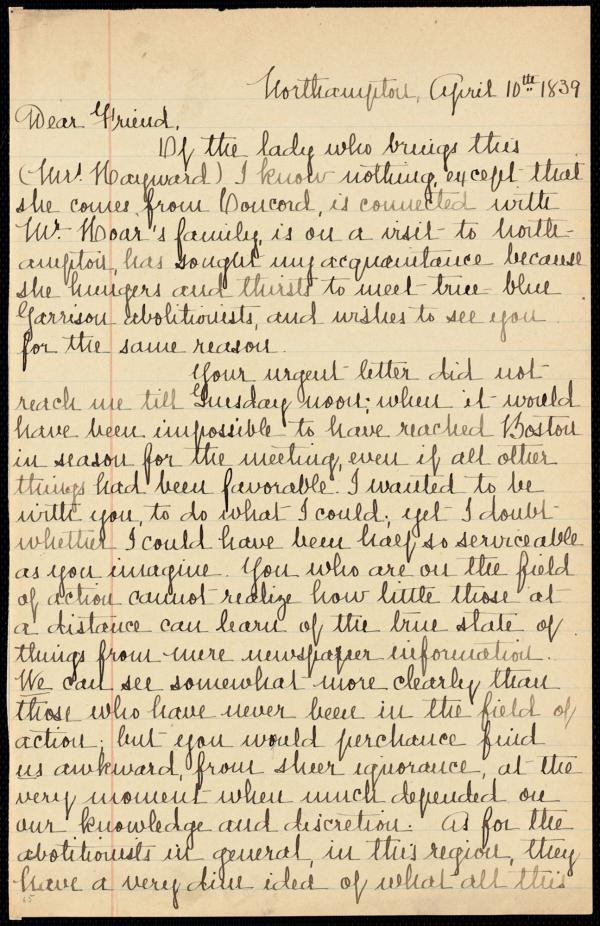 Northampton, April 10th 1839
Dear Friend,
Of the lady who brings this
(Mrs. Hayward) I know nothing, except that
she comes from Concord, is connected with
Mr. Hoar's family, is on a visit to North-
ampton, has sought my acquaintance because
she hungers and thirsts to meet true-blue
Garrison abolitionists, and wishes to see you
for the same reason.
Your urgent letter did not
reach me till Tuesday noon; when it would
have been impossible to have reached Boston
in season for the meeting, even if all other
things had been favorable. I wanted to be
with you, to do what I could; yet I doubt
whether I could have been half so serviceable
as you imagine. You who are on the field
of action cannot realize how little those at
a distance can learn of the true state of
things from mere newspaper information.
We can see somewhat more clearly than
those who have never been in the field of
action; but you would perchance find
us awkward, from sheer ignorance, at the
very moment when much depended on
our knowledge and discretion. As for the
abolitionists in general, in this region, they
have a very dim idea of what all this
65